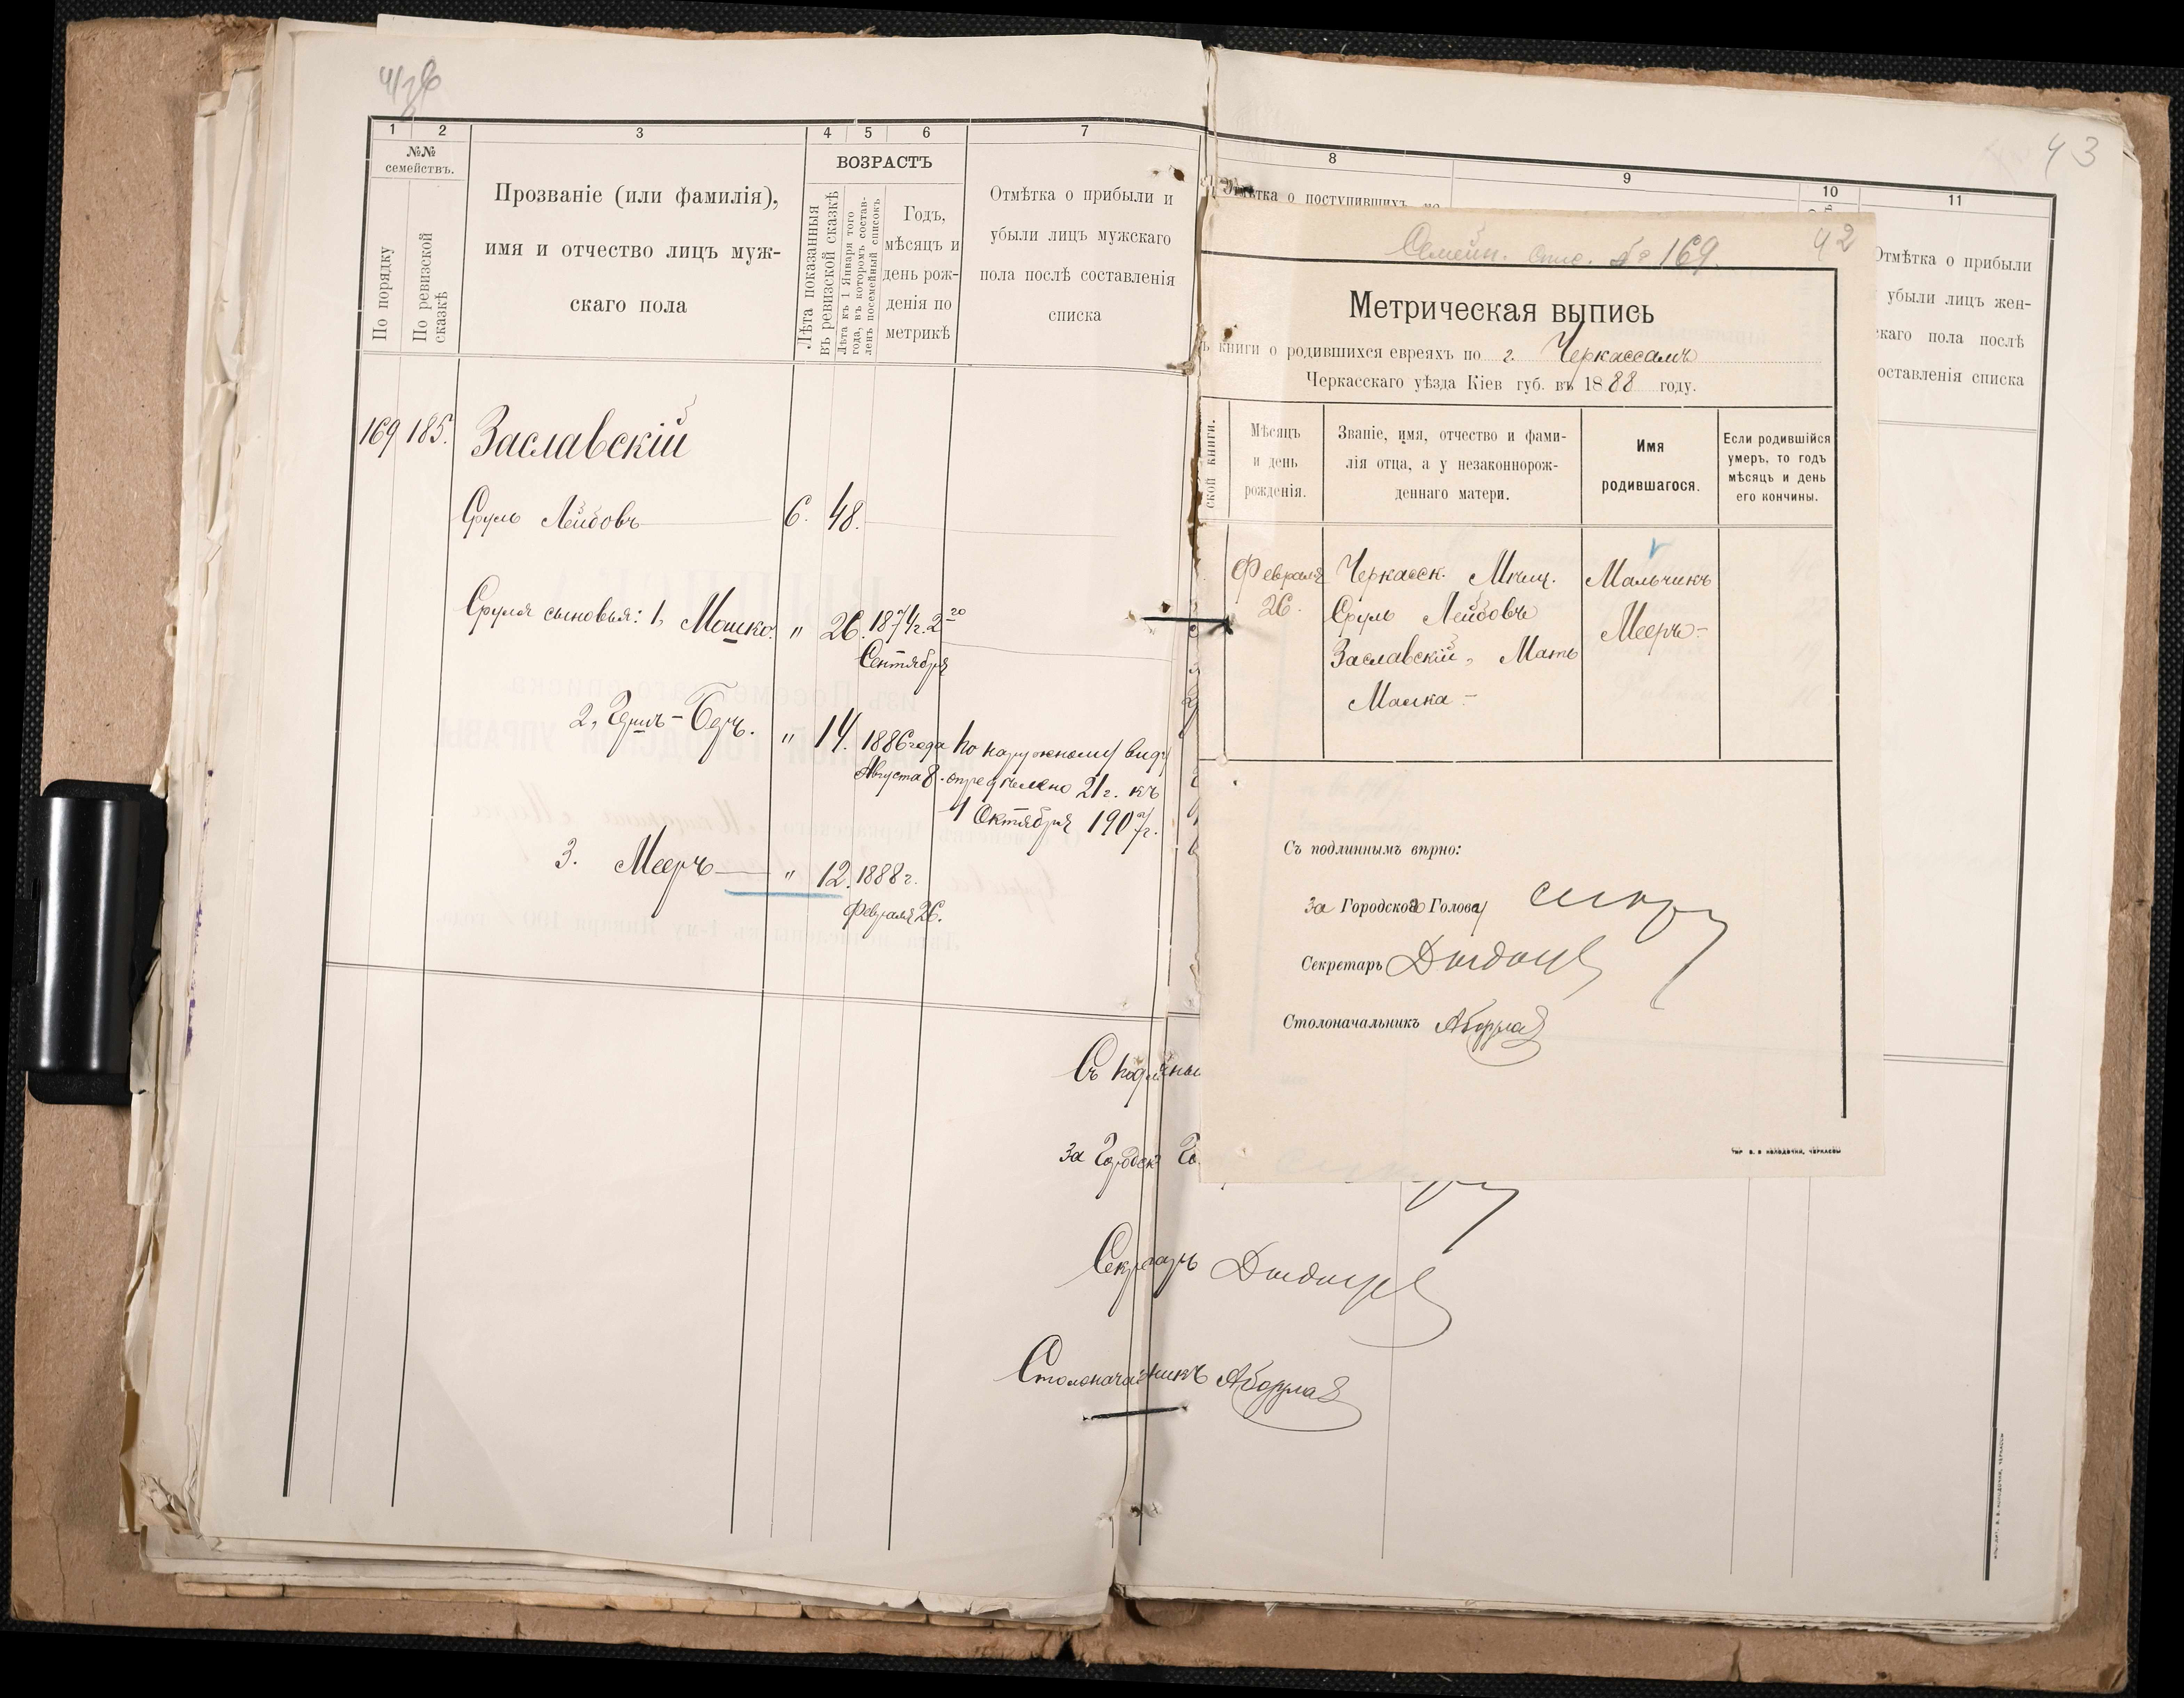 43
1
2
3
4
5
6
7
№№
семействъ.
По порядку
По ревизской
сказкѣ
Прозваніе (или фамилія),
имя и отчество лицъ муж-
скаго пола
ВОЗРАСТЪ
Лѣта показанныя
въ ревизской сказкѣ
Лѣта къ 1 Января того
года, въ которомъ состав-
ленъ посемейный списокъ
Годъ,
мѣсяцъ и
день рож-
денія по
метрикѣ
Отмѣтка о прибыли и
убыли лицъ мужскаго
пола послѣ составленія
списка
169
185.
Заславскій
Сруль Лейбовъ
6.
48.
Сруля сыновья: 1, Мошко.
"
26.
1874 г. 20
Сентября
"
14.
1886 года
Августа 8.
По наружному виду
опредѣлено 21 г. къ
1 Октября 1907 г.
3. Мееръ
"
12.
1888 г.
Февраля 26.
Съ подлинны
За Городск Го
Секретарь
Столоначальникъ
8
9
10
11
Отмѣтка о поступившихъ
Отмѣтка о прибыли
убыли лицъ жен-
скаго пола послѣ
оставленія списка
Семейн. спис. № 169.
42
Метрическая выпись
ъ книги о родившихся евреяхъ по г. Черкассамъ
Черкасскаго уѣзда Кіев губ. въ 1888 году.
ской книги.
Мѣсяцъ
и день
рожденія.
Званіе, имя, отчество и фами-
лія отца, а у незаконнорож-
деннаго матери.
Имя
родившагося.
Если родившійся
умеръ, то годъ
мѣсяцъ и день
его кончины.
Февраля
26.
Черкасск. Мѣщ.
Сруль Лейбовъ
Заславскій, Мать
Малка -
Мальчикъ
Мееръ -
Съ подлиннымъ вѣрно:
За Городского Голову
Секретарь
Столоначальникъ